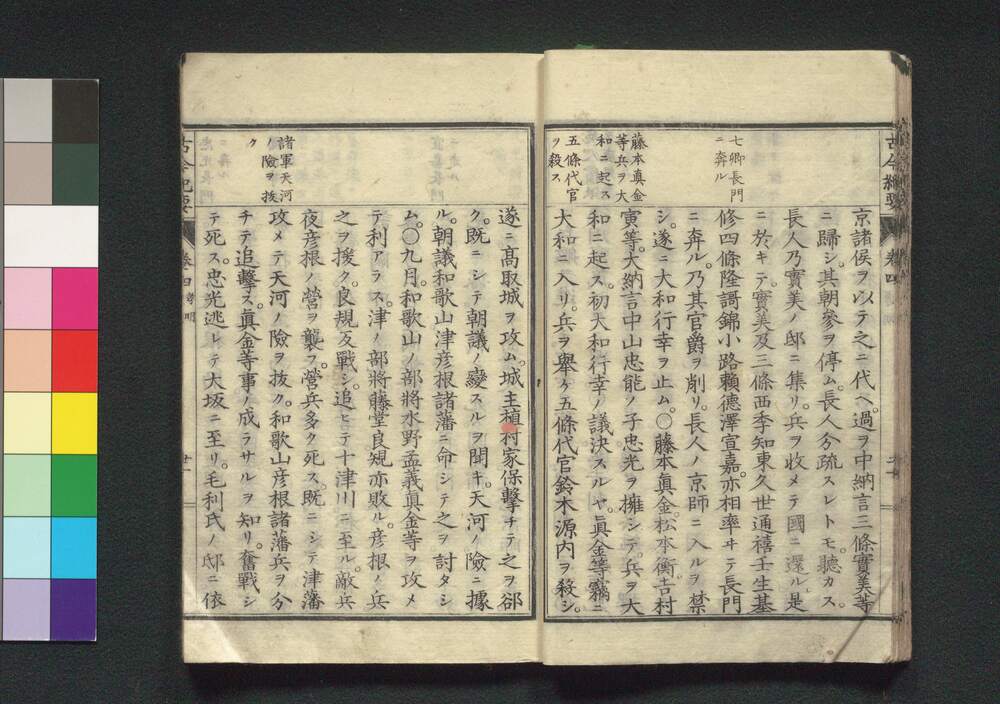 古今紀要
卷四
七卿長門
ニ奔ル
藤本真金
等兵ヲ大
和ニ起ス
五條代官
ヲ殺ス
京諸侯ヲ以テ之ニ代ヘ。過ヲ中納言三條實美等
ニ歸シ。其朝參ヲ停ム。長人分疏スレトモ。聽カス。
長人乃實美ノ邸ニ集リ。兵ヲ收メテ國ニ還ル。是
ニ於キテ。實美及三條西季知東久世通禧壬生基
修四條隆謌錦小路賴德澤宣嘉。亦相率ヰテ長門
ニ奔ル。乃其官爵ヲ削リ。長人ノ京師ニ入ルヲ禁
シ。遂ニ大和行幸ヲ止ム。〇藤本眞金。松本衡。吉村
寅等。大納言中山忠能ノ子忠光ヲ擁シテ。兵ヲ大
和ニ起ス。初大和行幸ノ議決スルヤ。眞金等竊ニ
大和ニ入リ。兵ヲ舉ケ五條代官鈴木源内ヲ殺シ。
諸軍天河
ノ險ヲ拔
ク
遂ニ髙取城ヲ攻ム。城主植村家保擊チテ之ヲ郤
ク。既ニシテ朝議ノ變スルヲ聞キ。天河ノ險ニ據
ル。朝議和歌山津彦根諸藩ニ命シテ之ヲ討タシ
ム。〇九月。和歌山ノ部將水野孟義真金等ヲ攻メ
テ利アラス。津ノ部將藤堂良䂓亦敗ル。彦根ノ兵
之ヲ援ク。良規反戰シ。追ヒテ十津川ニ至ル。敵兵
夜彦根ノ營ヲ襲フ。營兵多ク死ス。既ニシテ津藩
攻メテ天河ノ險ヲ抜ク。和歌山彦根諸藩兵ヲ分
チテ追擊ス。眞金等事ノ成ラサルヲ知リ。奮戰シ
テ死ス。忠光逃レテ大坂ニ至リ。毛利氏ノ邸ニ依
古今紀要
卷四
廿一